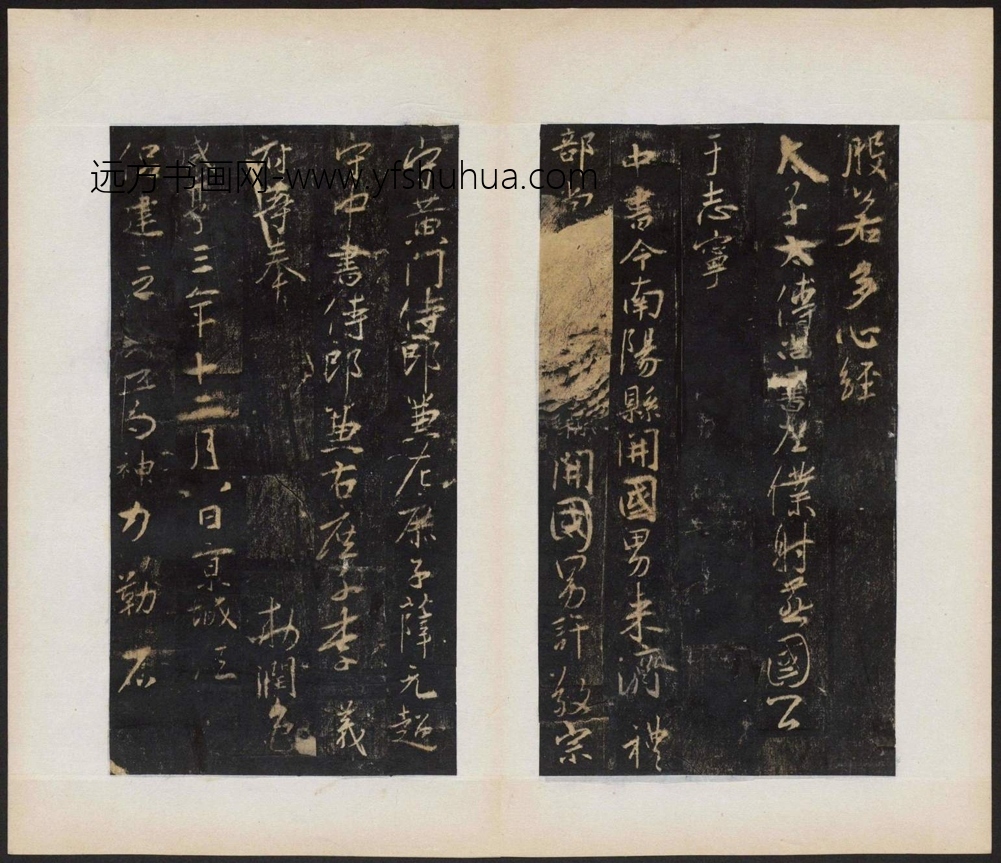 般若多心經
太子太傅尚書左僕射燕國公
于志寧
中書令南陽縣開國男来濟禮
部尚 開國男許敬宗
守黄門侍郎兼左庶子薛元超
守中書侍郎兼右庶子李義
府等奉 勑潤色
咸亨三年十二月八日京城
建立 神力勒石
远方书画网-www.yfshuhua.com